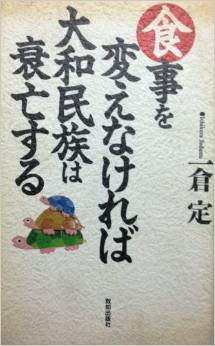 食事を
変えなければ
大和民族は
衰亡する
●Ichikura Sadamu
一倉 定
致知出版社